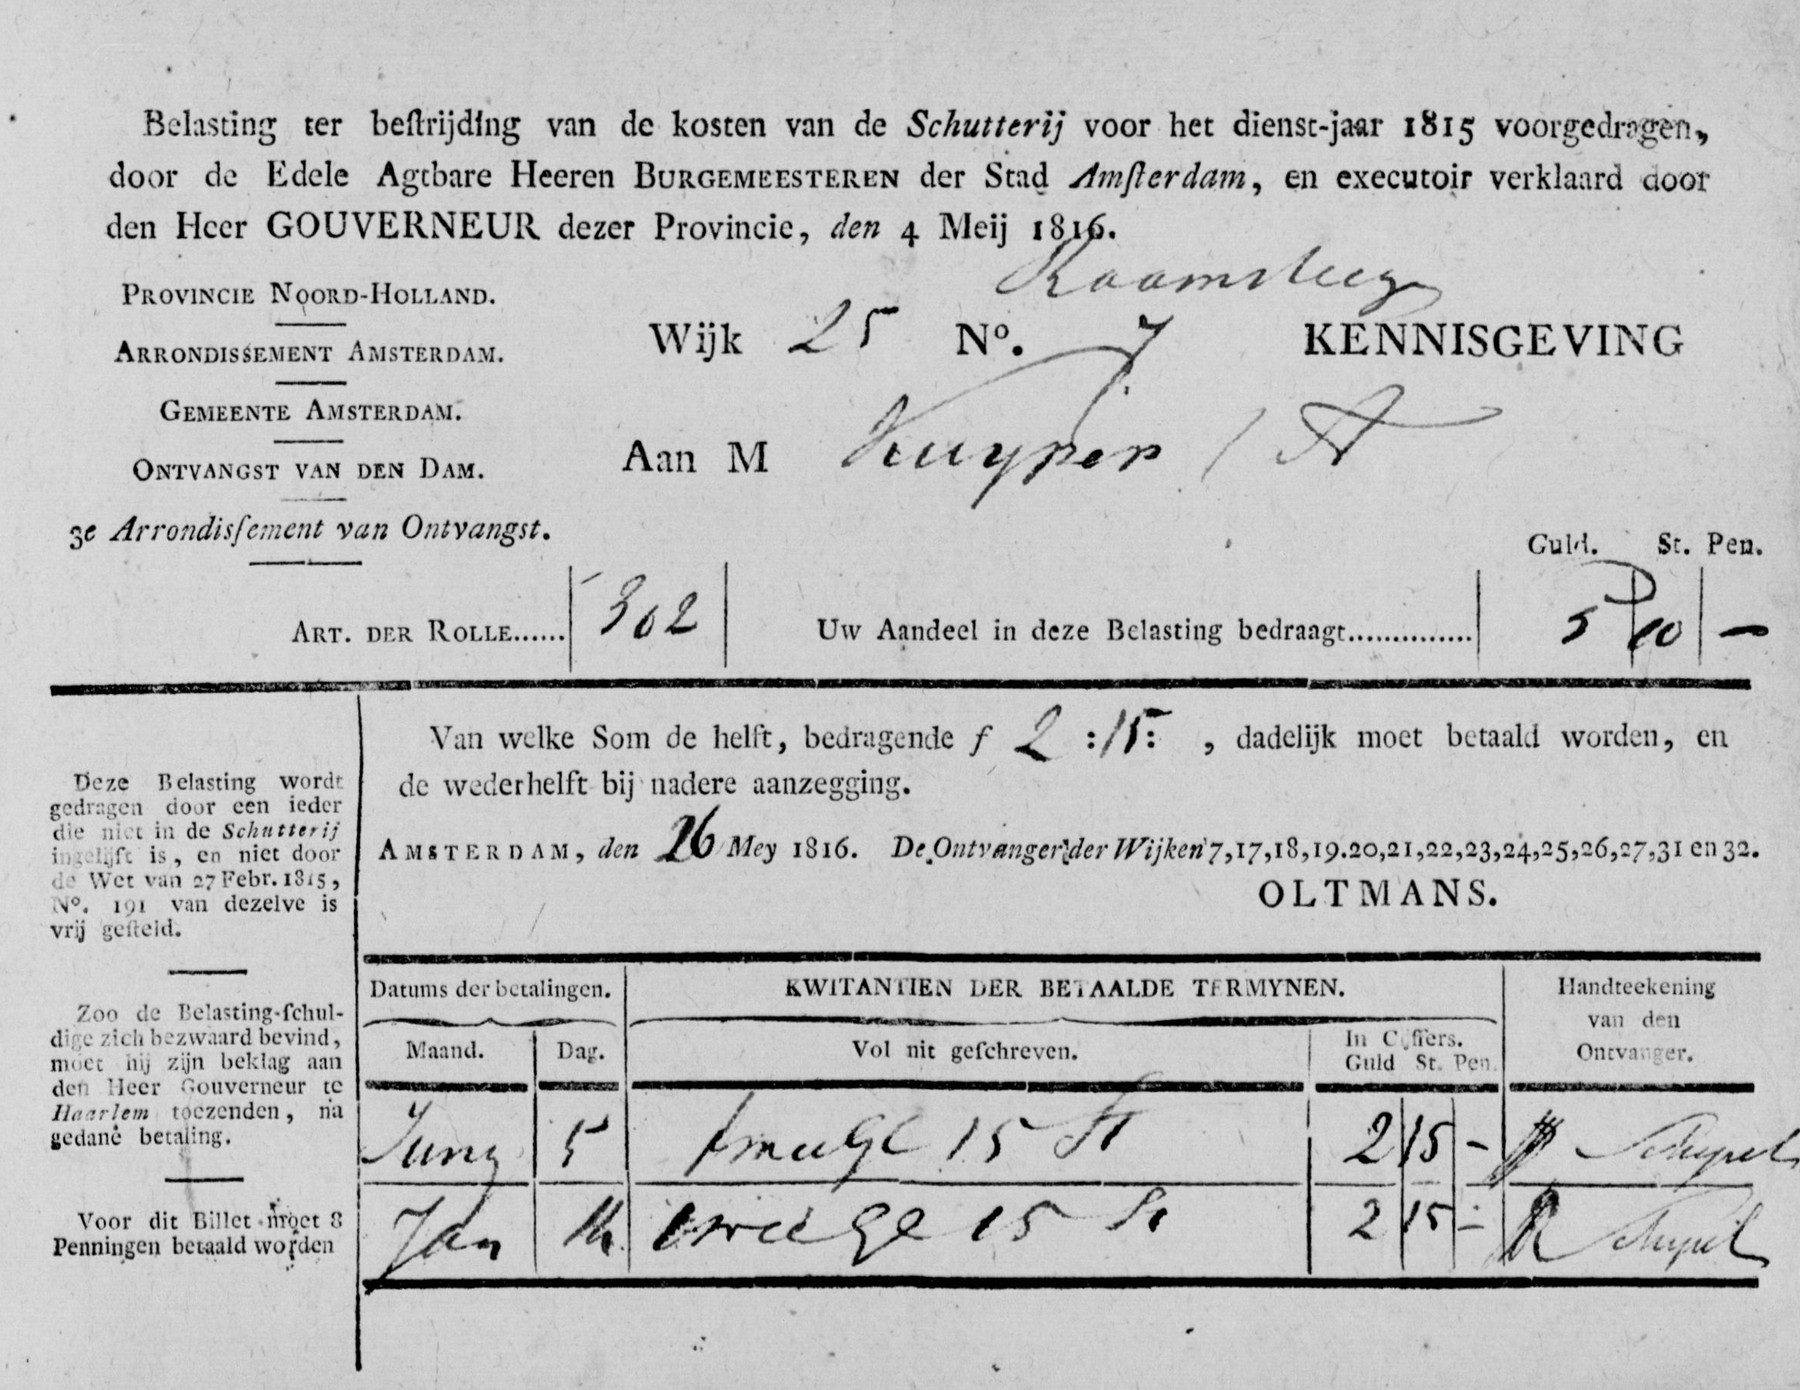 Belasting ter beſtrijding van de kosten van de Schutterij voor het dienst-jaar 1815 voorgedragen,
door de Edele Agtbare Heeren BURGEMEESTEREN der Stad Amſterdam, en executoir verklaard door
den Heer GOUVERNEUR dezer Provincie, den 4 Meij 1816.
PROVINCIE NOORD-HOLLAND.
ARRONDISSEMENT AMSTERDAM.
GEMEENTE AMSTERDAM.
ONTVANGST VAN DEN DAM.
3e Arrondisſement van Ontvangst.
Raamsteeg
Wijk 25 No. 7 KENNISGEVING
Aan M Kuyper / A
Guld. St. Pen.
ART. DER ROLLE...... 302 Uw Aandeel in deze Belasting bedraagt.............. 5 10 —
Van welke Som de helft, bedragende f 2 :15: , dadelijk moet betaald worden, en
de wederhelft bij nadere aanzegging.
AMSTERDAM, den 26 Mey 1816. De Ontvanger der Wijken 7,17,18,19.20,21,22,23,24,25,26,27,31 en 32.
OLTMANS.
Deze Belasting wordt
gedragen door een ieder
die niet in de Schutterij
ingelijft is, en niet door
de Wet van 27 Febr. 1815,
No. 191 van dezelve is
vrij geſteld.
Zoo de Belasting-ſchul-
dige zich bezwaard bevind,
moet hij zijn beklag aan
den Heer Gouverneur te
Haarlem toezenden, na
gedane betaling.
Voor dit Billet moet 8
Penningen betaald worden
Datums der betalingen. KWITANTIEN DER BETAALDE TERMYNEN. Handteekening
van den
Ontvanger.
Maand. Dag. Vol uit geſchreven. In Cijffers.
Guld St. Pen.
Juny 5 twee Gl 15 St 2 15 –
Jan twee Gl 15 St 2 15 –